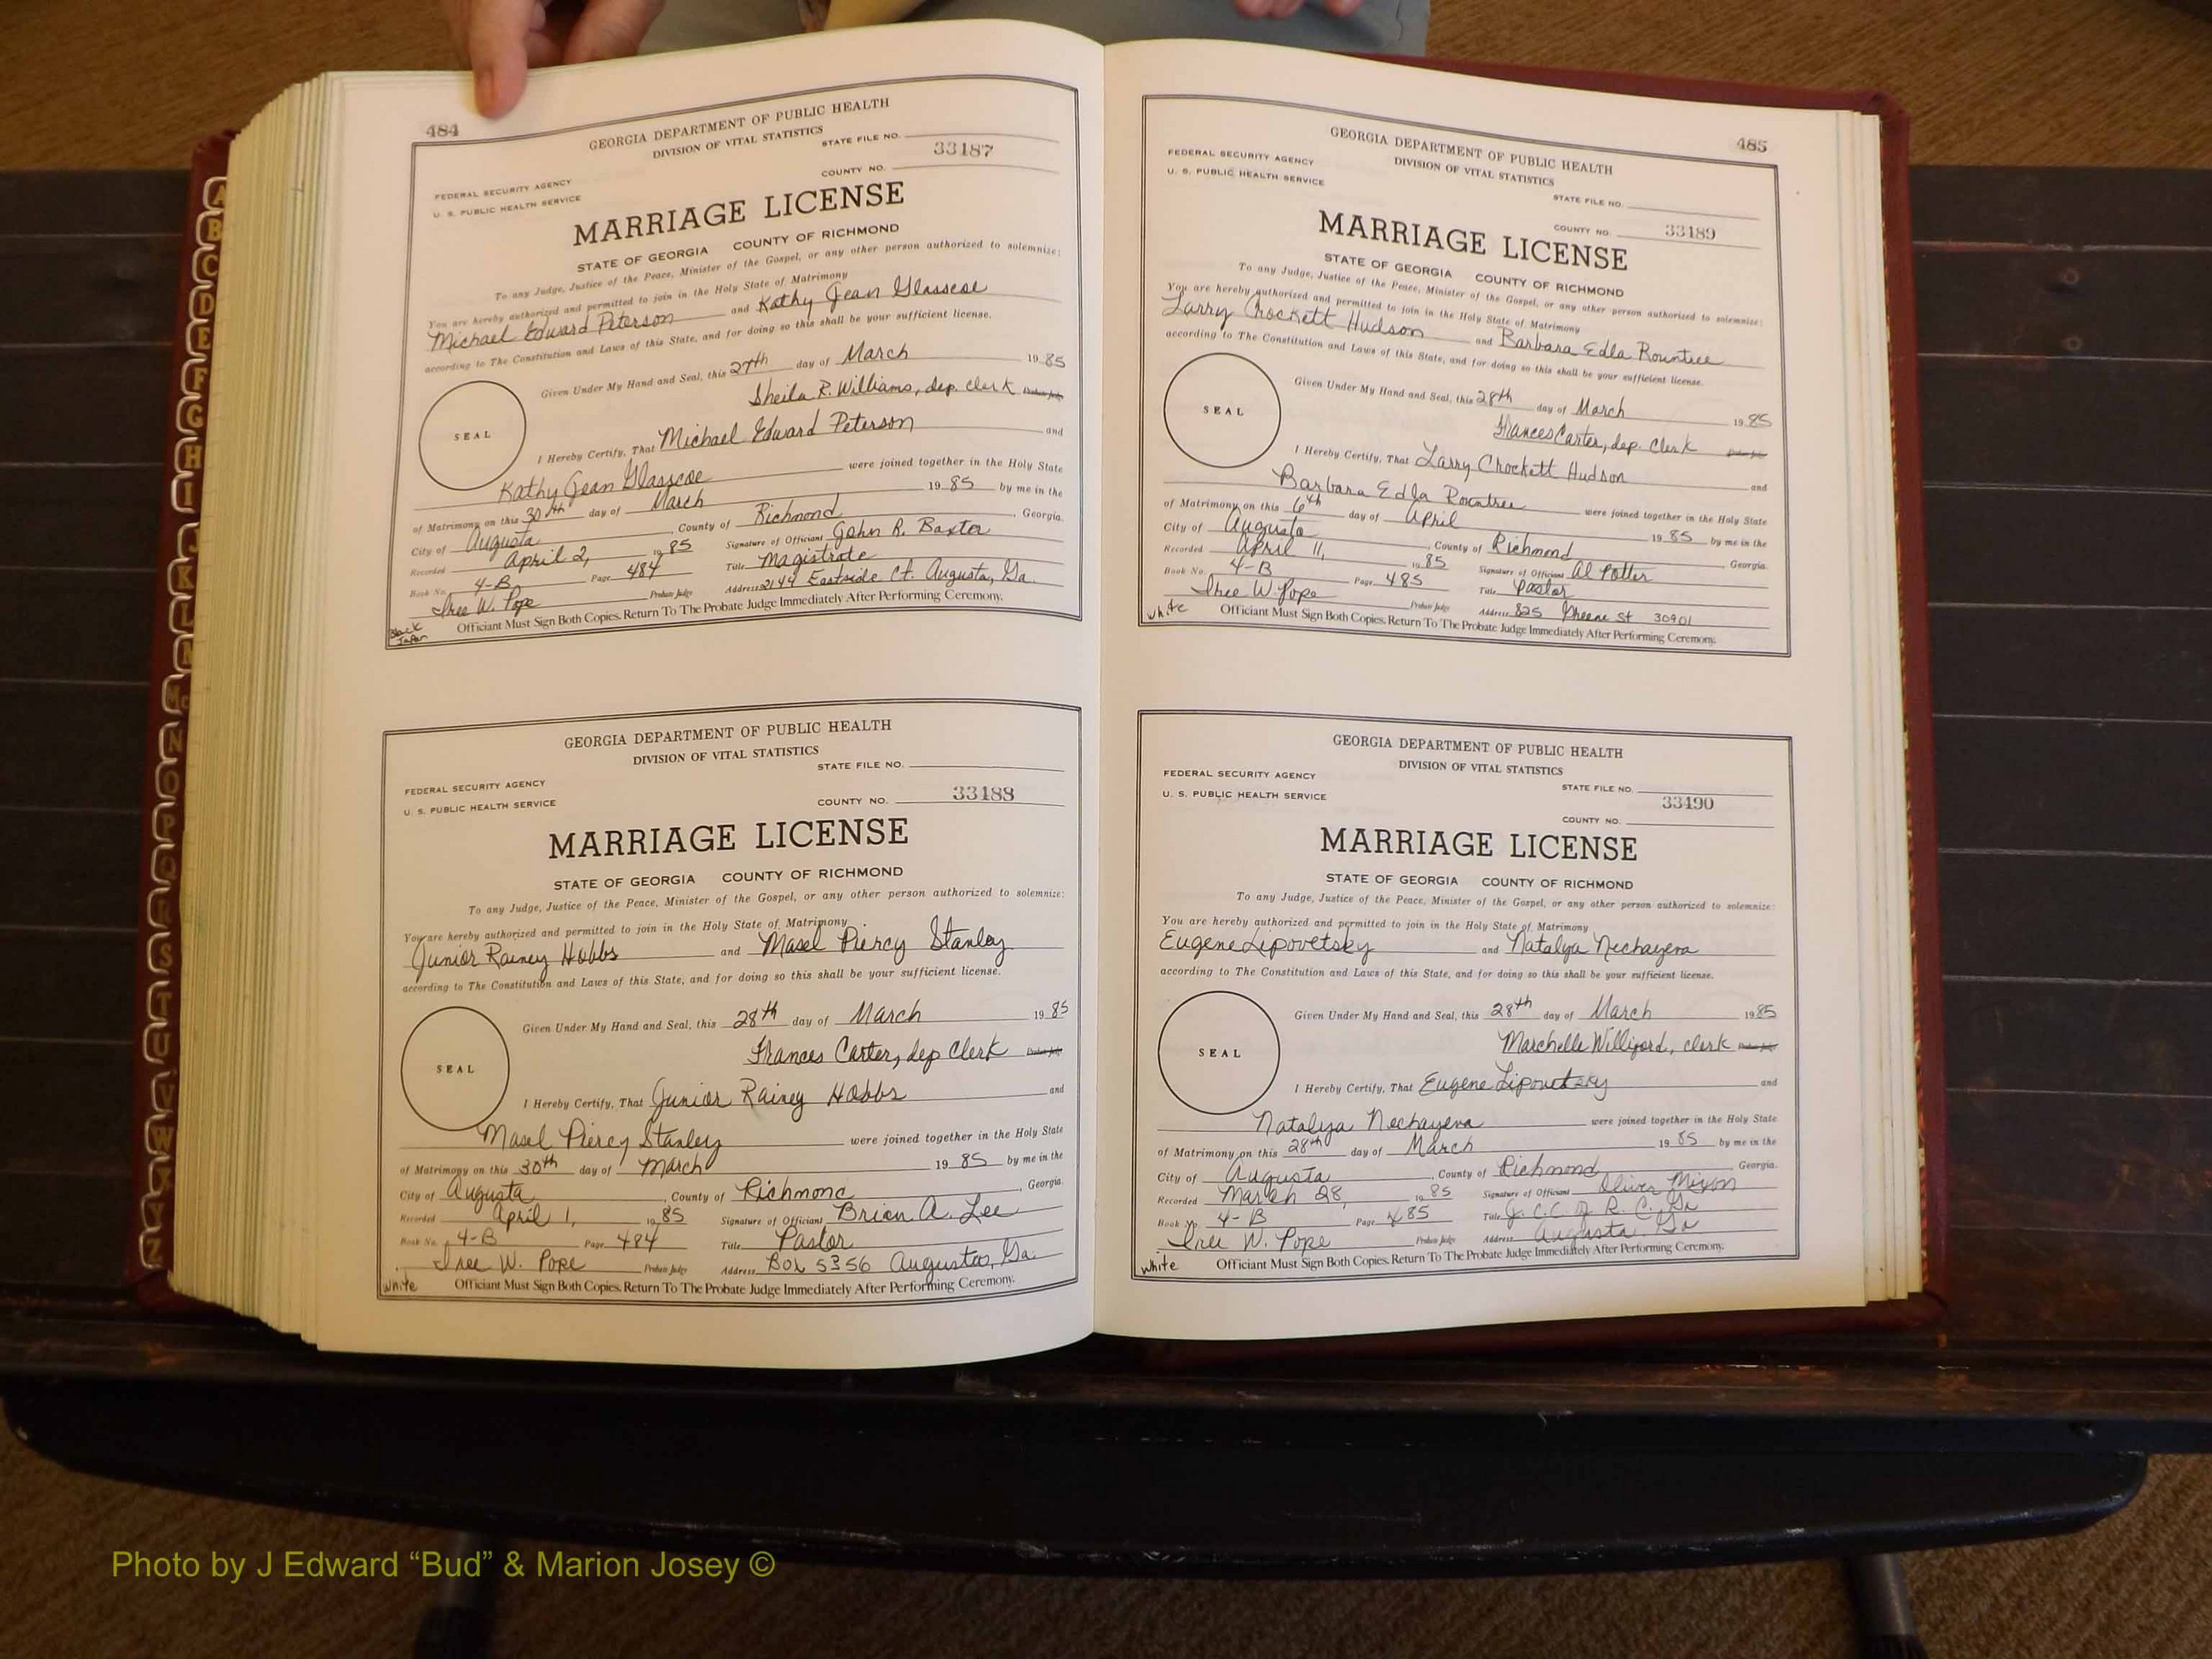 484
GEORGIA DEPARTMENT OF PUBLIC HEALTH
DIVISION OF VITAL STATISTICS
STATE FILE NO.
33187
FEDERAL SECURITY AGENCY
COUNTY NO.
U. S. PUBLIC HEALTH SERVICE
MARRIAGE LICENSE
STATE OF GEORGIA COUNTY OF RICHMOND
To any Judge, Justice of the Peace, Minister of the Gospel, or any other person authorized to solemnize:
You are hereby authorized and permitted to join in the Holy State of Matrimony
Michael Edward Peterson and Kathy Jean Glasscoe
according to The Constitution and Laws of this State, and for doing so this shall be your sufficient license.
Given Under My Hand and Seal, this 27th day of March 1985
Sheila R. Williams, dep. clerk Probate Judge
SEAL
I Hereby Certify, That Michael Edward Peterson and
Kathy Jean Glasscoe were joined together in the Holy State
of Matrimony on this 30th day of March 1985 by me in the
City of Augusta County of Richmond, Georgia.
Recorded April 2, 1985 Signature of Officiant John R. Baxter
Book No. 4-B Page 484 Title Magistrate
Iree W. Pope Probate Judge Address 2144 Eastside Ct. Augusta, Ga.
Black
Japan
Officiant Must Sign Both Copies. Return To The Probate Judge Immediately After Performing Ceremony.
GEORGIA DEPARTMENT OF PUBLIC HEALTH
DIVISION OF VITAL STATISTICS
STATE FILE NO.
FEDERAL SECURITY AGENCY
U. S. PUBLIC HEALTH SERVICE
COUNTY NO. 33188
MARRIAGE LICENSE
STATE OF GEORGIA COUNTY OF RICHMOND
To any Judge, Justice of the Peace, Minister of the Gospel, or any other person authorized to solemnize:
You are hereby authorized and permitted to join in the Holy State of Matrimony
Junior Rainey Hobbs and Masel Piercy Stanley
according to The Constitution and Laws of this State, and for doing so this shall be your sufficient license.
Given Under My Hand and Seal, this 28th day of March 1985
Frances Carter, dep Clerk Probate Judge
SEAL
I Hereby Certify, That Junior Rainey Hobbs and
Masel Piercy Stanley were joined together in the Holy State
of Matrimony on this 30th day of March 1985 by me in the
City of Augusta, County of Richmond, Georgia.
Recorded April 1, 1985 Signature of Officiant Brian A. Lee
Book No. 4-B Page 484 Title Pastor
Iree W. Pope Probate Judge Address Box 5356 Augusta, Ga.
White
Officiant Must Sign Both Copies. Return To The Probate Judge Immediately After Performing Ceremony.
485
GEORGIA DEPARTMENT OF PUBLIC HEALTH
DIVISION OF VITAL STATISTICS
FEDERAL SECURITY AGENCY
U. S. PUBLIC HEALTH SERVICE
STATE FILE NO.
COUNTY NO. 33189
MARRIAGE LICENSE
STATE OF GEORGIA COUNTY OF RICHMOND
To any Judge, Justice of the Peace, Minister of the Gospel, or any other person authorized to solemnize:
You are hereby authorized and permitted to join in the Holy State of Matrimony
Larry Chockett Hudson and Barbara Edla Rountree
according to The Constitution and Laws of this State, and for doing so this shall be your sufficient license.
Given Under My Hand and Seal, this 28th day of March 1985
Frances Carter, dep. Clerk Probate Judge
SEAL
I Hereby Certify, That Larry Chockett Hudson and
Barbara Edla Rountree were joined together in the Holy State
of Matrimony on this 6th day of April 1985 by me in the
City of Augusta, County of Richmond Georgia.
Recorded April 11, 1985 Signature of Officiant Al Potter
Book No. 4-B Page 485 Title Pastor
Iree W. Pope Probate Judge Address 825 Greene St 30901
White
Officiant Must Sign Both Copies. Return To The Probate Judge Immediately After Performing Ceremony.
GEORGIA DEPARTMENT OF PUBLIC HEALTH
DIVISION OF VITAL STATISTICS
FEDERAL SECURITY AGENCY
STATE FILE NO.
U. S. PUBLIC HEALTH SERVICE
33190
COUNTY NO.
MARRIAGE LICENSE
STATE OF GEORGIA COUNTY OF RICHMOND
To any Judge, Justice of the Peace, Minister of the Gospel, or any other person authorized to solemnize:
You are hereby authorized and permitted to join in the Holy State of Matrimony
Eugene Lipovetsky and Natalya Nechayeva
according to The Constitution and Laws of this State, and for doing so this shall be your sufficient license.
Given Under My Hand and Seal, this 28th day of March 1985
Marchelle Williford, clerk Probate Judge
SEAL
I Hereby Certify, That Eugene Lipovetsky and
Natalya Nechayeva were joined together in the Holy State
of Matrimony on this 28th day of March 1985 by me in the
City of Augusta, County of Richmond, Georgia.
Recorded March 28, 1985 Signature of Officiant Oliver Mixon
Book No. 4-B Page 485 Title J. C. C. of R. C., Ga
Iree W. Pope Probate Judge Address Augusta, Ga
White
Officiant Must Sign Both Copies. Return To The Probate Judge Immediately After Performing Ceremony.
A
B
C
D
E
F
G
H
I
J
K
L
M
Mc
N
O
P
Q
R
S
T
U
V
W
X
Y
Z
Photo by J Edward “Bud” & Marion Josey ©